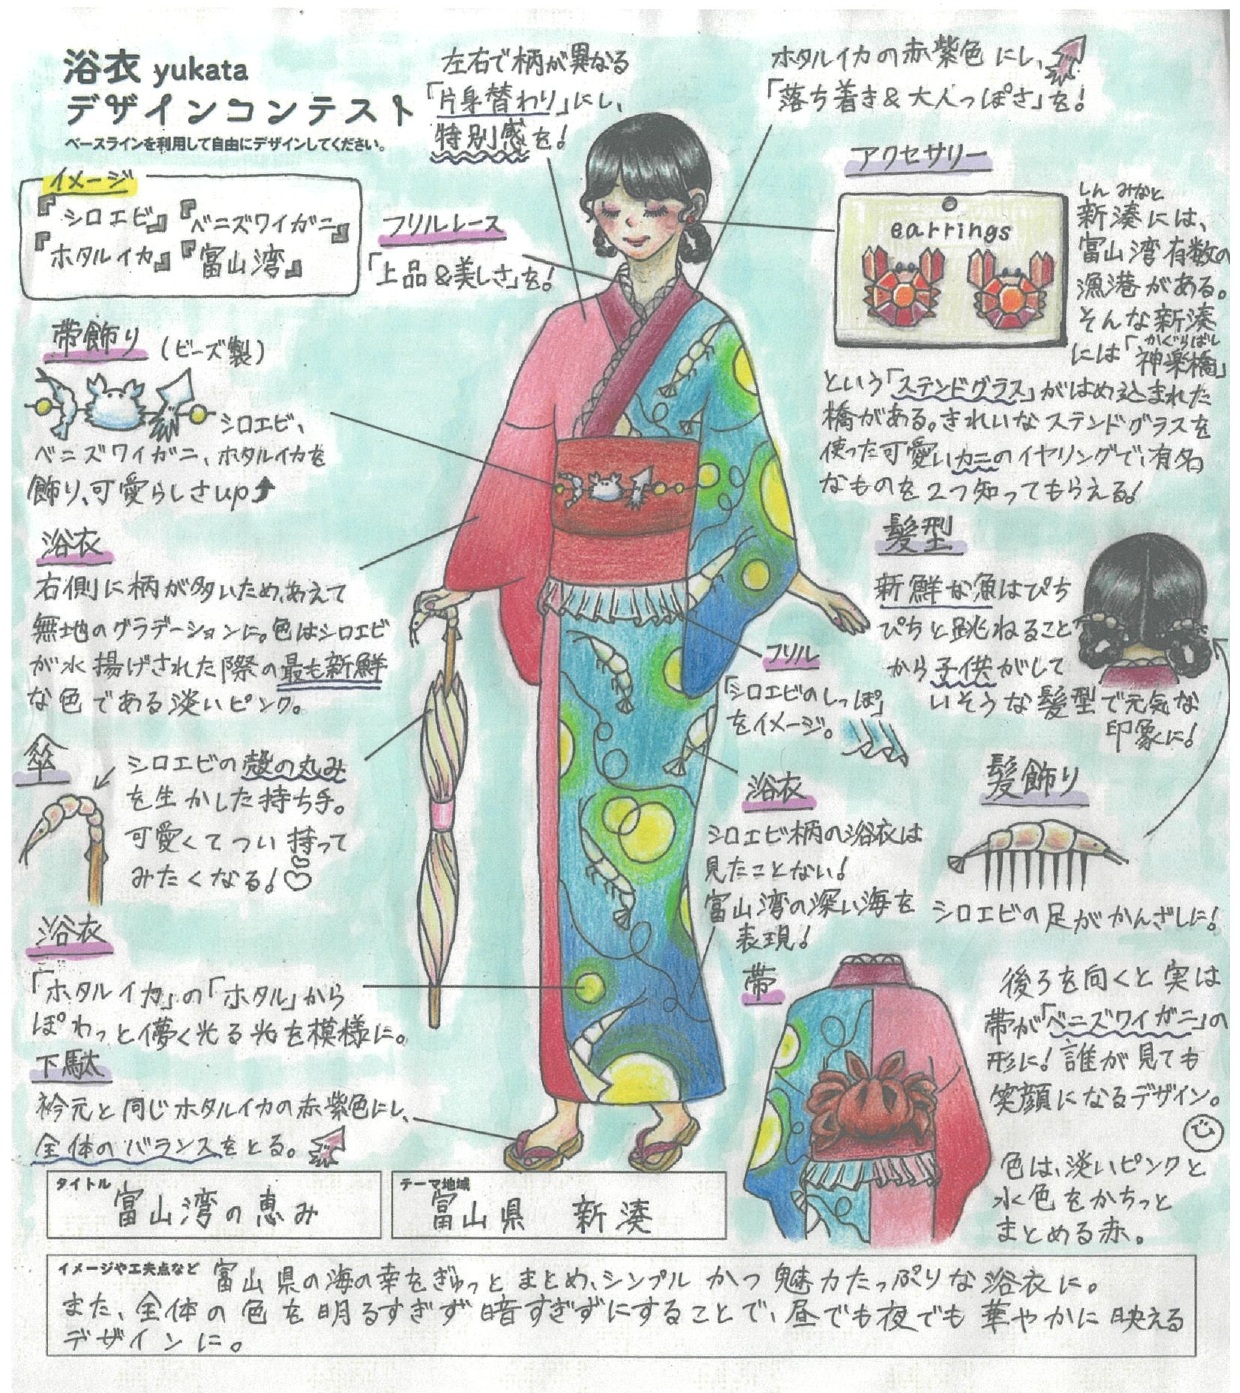 浴衣 yukata
デザインコンテスト
ベースラインを利用して自由にデザインしてください。
イメージ
『シロエビ』『ベニズワイガニ』
『ホタルイカ』『富山湾』
左右で柄が異なる
「片身替わり」にし、
特別感を!
ホタルイカの赤紫色にし、
「落ち着き&大人っぽさ」を!
フリルレース
「上品&美しさ」を!
アクセサリー
earrings
しん みなと
新湊には、
富山湾有数の
漁港がある。
そんな新湊
かぐらばし
には「神楽橋」
という「ステンドグラス」がはめ込まれた
橋がある。きれいなステンドグラスを
使った可愛いカニのイヤリングで、有名
なものを2つ知ってもらえる!
帯飾り(ビーズ製)
シロエビ、
ベニズワイガニ、ホタルイカを
飾り、可愛らしさup
浴衣
右側に柄が多いため、あえて
無地のグラデーションに。色はシロエビ
が水揚げされた際の最も新鮮
な色である淡いピンク。
髪型
新鮮な魚はぴち
ぴちと跳ねること
から子供がして
いそうな髪型で元気な
印象に!
フリル
「シロエビのしっぽ」
をイメージ。
傘
シロエビの殻の丸み
を生かした持ち手。
可愛くてつい持って
みたくなる!
浴衣
シロエビ柄の浴衣は
見たことない!
富山湾の深い海を
表現!
髪飾り
シロエビの足がかんざしに!
浴衣
「ホタルイカ」の「ホタル」から
ぽわっと儚く光る光を模様に。
下駄
衿元と同じホタルイカの赤紫色にし、
全体のバランスをとる。
帯
後ろを向くと実は
帯が「ベニズワイガニ」の
形に!誰が見ても
笑顔になるデザイン。
色は、淡いピンクと
水色をかちっと
まとめる赤。
タイトル
富山湾の恵み
テーマ地域
富山県 新湊
イメージや工夫点など 富山県の海の幸をぎゅっとまとめ、シンプルかつ魅力たっぷりな浴衣に。
また、全体の色を明るすぎず暗すぎずにすることで、昼でも夜でも華やかに映える
デザインに。